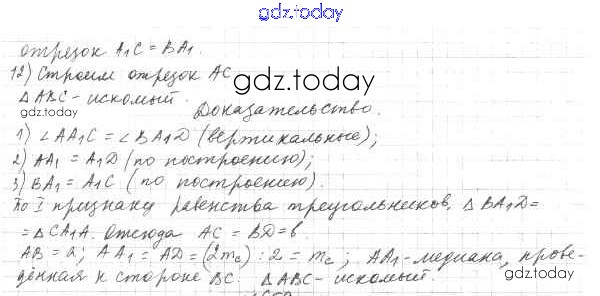 gdz.today
отрезок A₁C = BA₁.
12) Строим отрезок AC
gdz.today
△ABC - искомый.
gdz.today
Доказательство.
1) ∠AA₁C = ∠BA₁D (вертикальные);
2) AA₁ = A₁D (по построению);
3) BA₁ = A₁C (по построению).
По I признаку равенства треугольников, △BA₁D =
= △CA₁A. Отсюда AC = BD = b.
AB = a; AA₁ = AD = (2m_c) : 2 = m_c; AA₁ - медиана, прове-
дённая к стороне BC. △ABC - искомый.
gdz.today